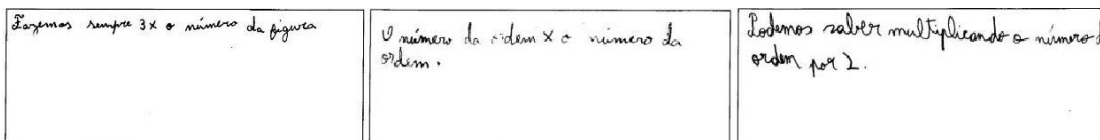 Fazemos sempre 3x o número da figura
O número da ordem X o número da
ordem.
Podemos saber multiplicando o número
ordem por 2.